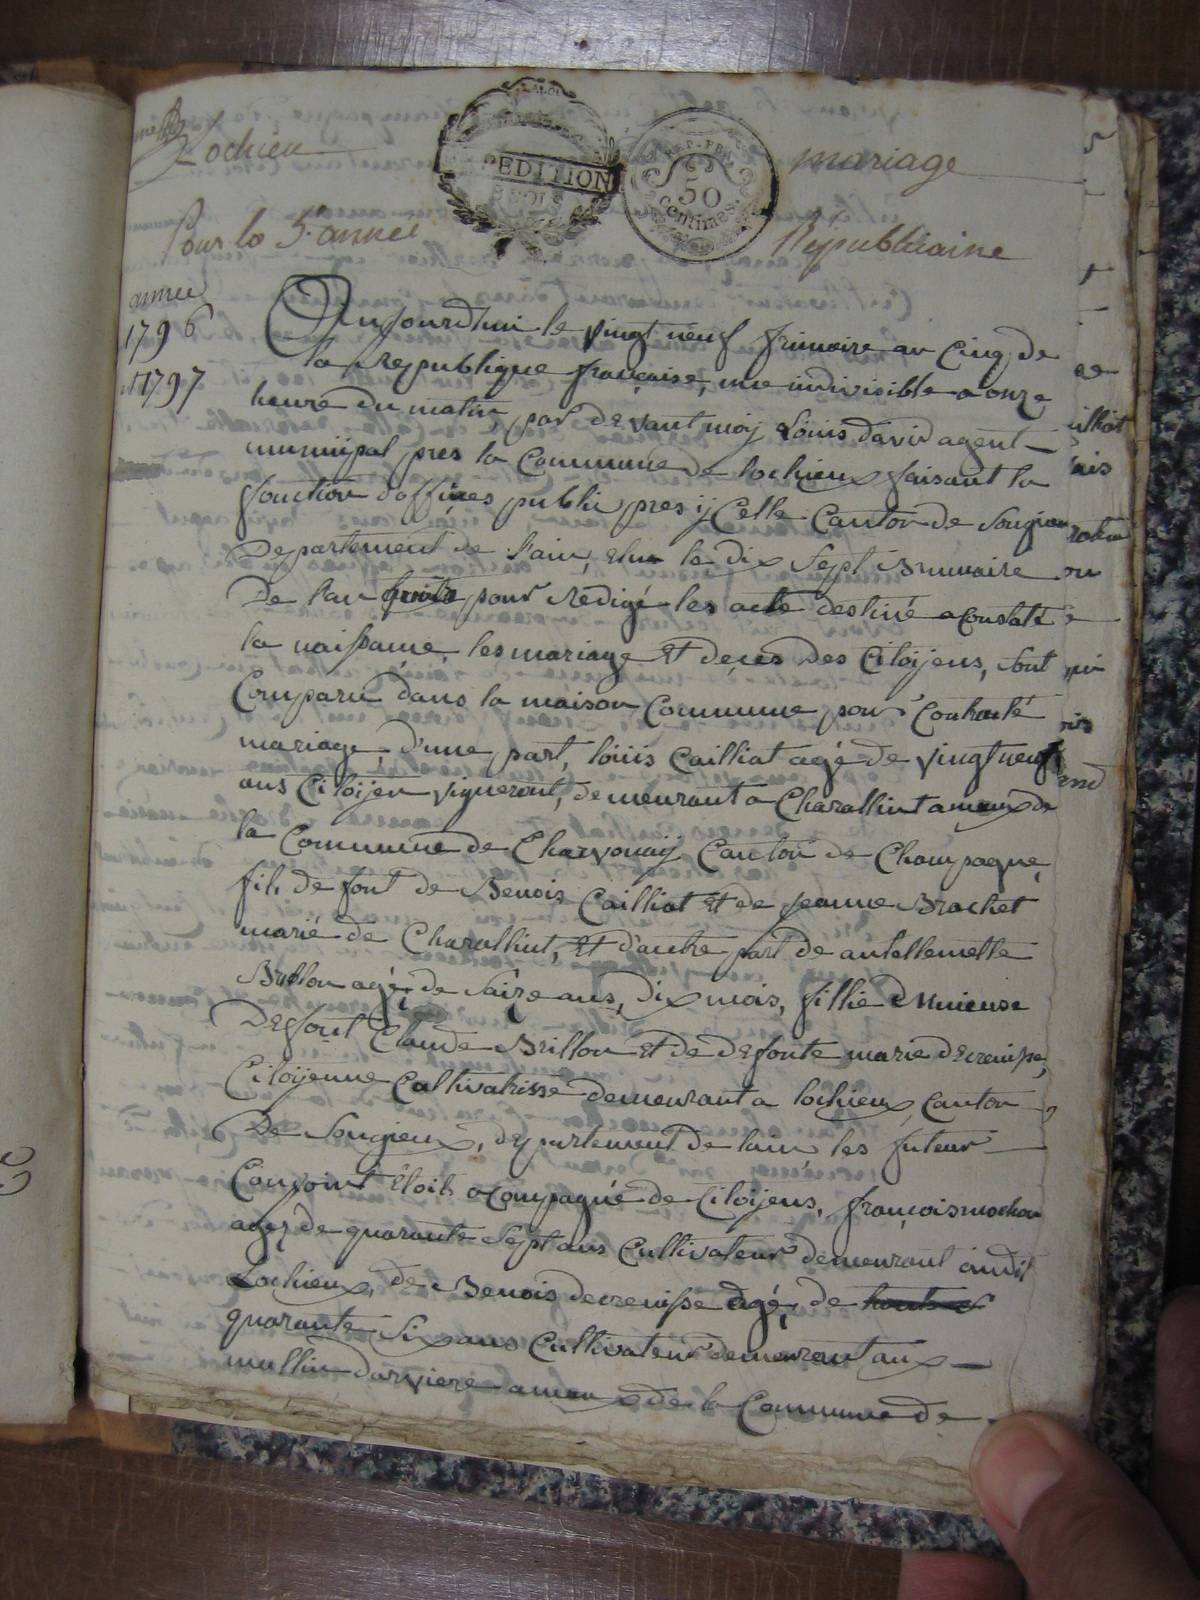 Lochieu
EXPEDITION
REP. FRA.
50
centimes.
mariage
Pour la 5e année
Républicaine
année
1796
et 1797
Aujourdhui le vingt neuf frimaire an Cinq de
la Republique française, une indivisible a onze
heure du matin, par devant moy Louis david agent
municipal pres la Commune de lochieux faisant la
fonction dofficies publi, pres ycelle Canton de Songieu
Departement de l'ain, elu le dix Sept Brumaire
De l'an pour rédigé les acte destiné a constaté
la naissance, les mariage Et deces des Citoijens, sont
Comparu dans la maison Commune pour Contracté
mariage, d'une part, loüis Cailliat agé de vingt neuf
ans Citoijen vigneront, demeurant a Charallint ameaux de
la Commune de Charvonay Canton de Champagne,
fils de font de Benois Cailliat Et de Jeanne Brachet
marié de Charallint, Et d'autre part de antellemette
Brillon agé, de Saize ans, dix mois, fillie Mineuse
Defont Claude Brillon Et de defonte marie decrenisse,
Citoijenne Caltivatrisse demeurant a lochieux, Canton
De Songieux, departement de lain, les futeur
Conjoint Etoit acompagné de Citoijens, françois mochon
agé, de quarante Sept ans Cultivateur demeurant audit
Lochieux, de Benois decrenisse agé, de
quarante Six ans Cultivateur demeurant aux
mullin darviere ameaux de la Commune de